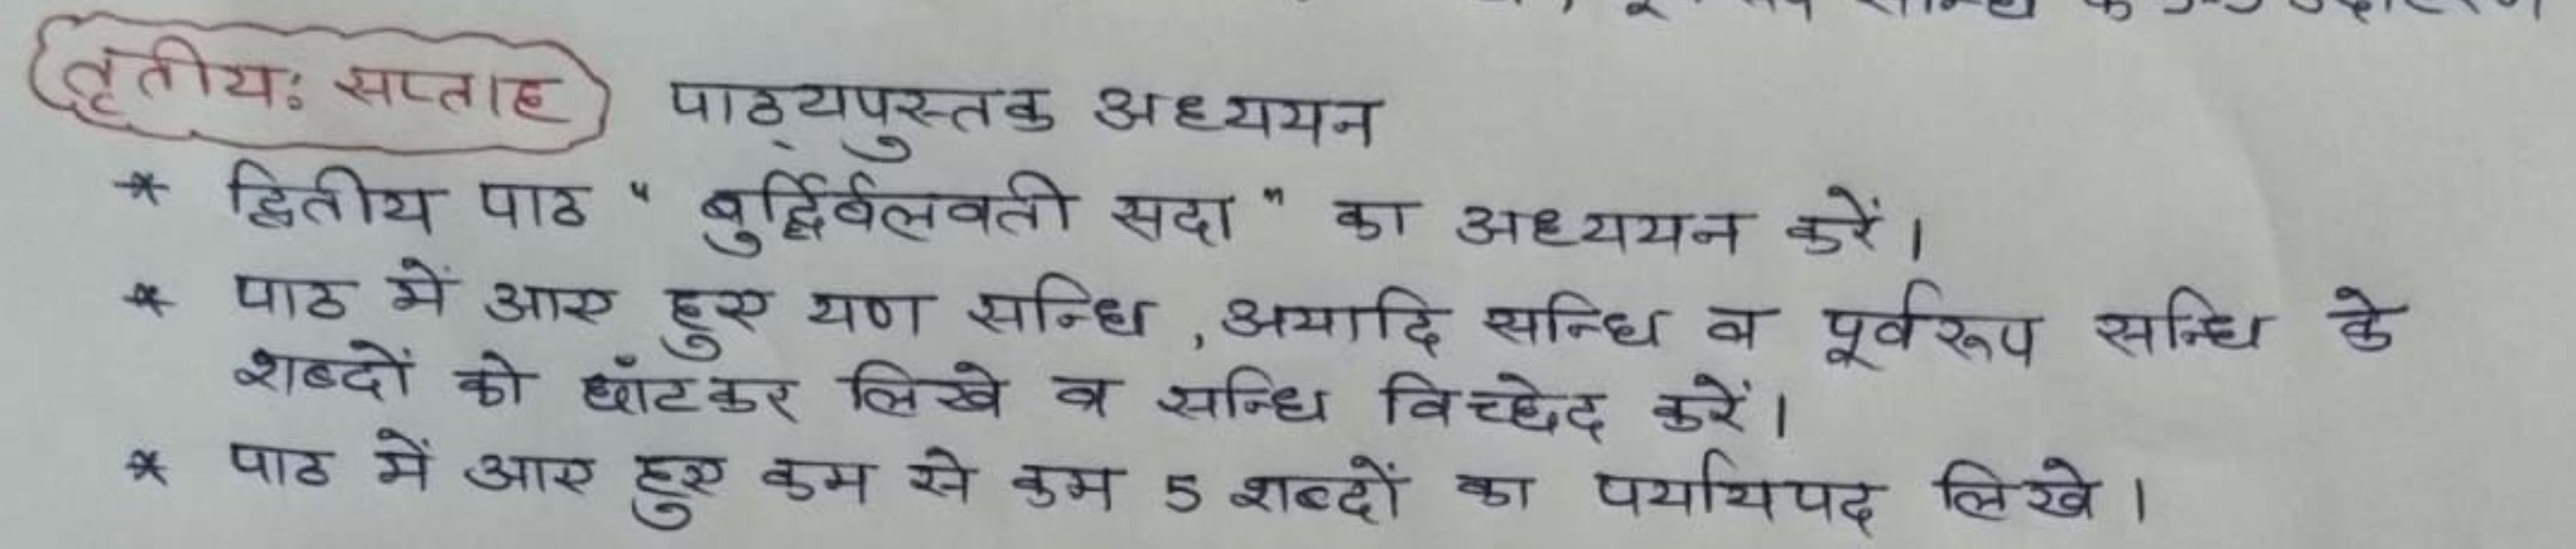 तृतीयः सप्ताह पाठ्यपुस्तक अध्ययन
* द्वितीय पाठ " बुद्धिर्बलवती सदा " का अध्ययन करें।
* पाठ में आए हुए यण सन्धि , अयादि सन्धि व पूर्वरूप सन्धि के
शब्दों को छाँटकर लिखे व सन्धि विच्छेद करें।
* पाठ में आए हुए कम से कम 5 शब्दों का पर्यायपद लिखे।